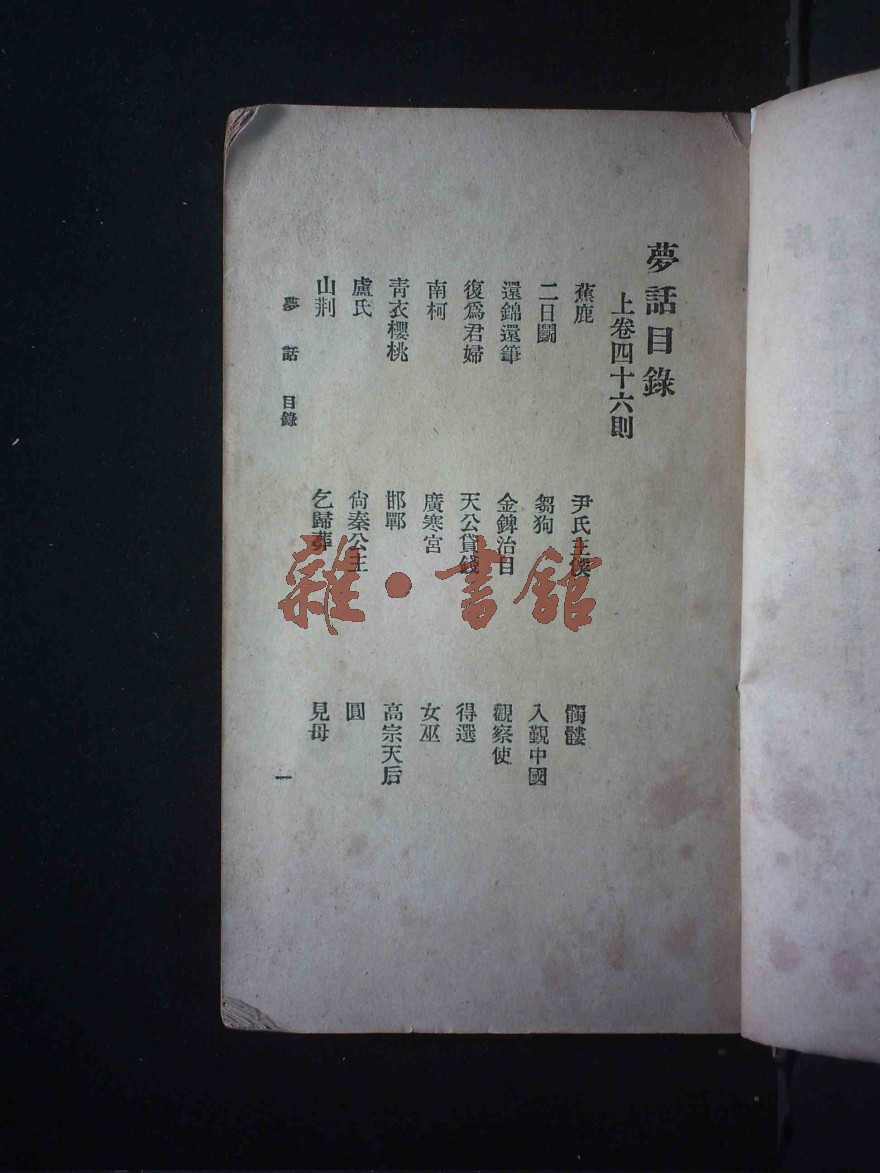 夢話目錄
上卷四十六則
蕉鹿
尹氏主僕
髑髏
二日鬬
芻狗
入覲中國
還錦還筆
金錍治目
觀察使
復爲君婦
天公貸錢
得選
南柯
廣寒宮
女巫
青衣櫻桃
邯鄲
高宗天后
盧氏
尙秦公主
圓
山荆
乞歸葬
見母
夢話 目錄
一
雜·書館
序